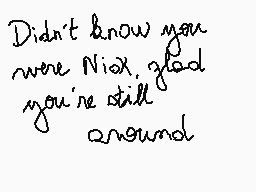 Didn't know you
were Nick, glad
you're still
around